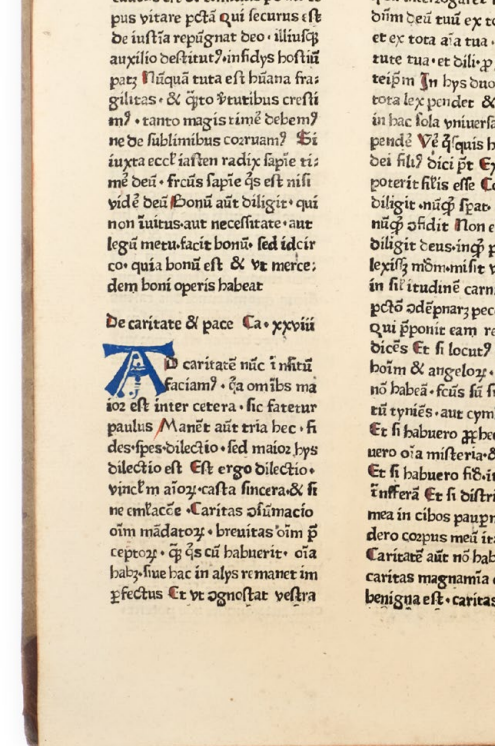 pus vitare pctā Qui securus est
de iusticia repūgnat deo · illiusqꝫ
auxilio destitutꝰ · infidys hostiū
patꝫ Nūquā tuta est hūana fra⸗
gilitas · & q̄to v̓tutibus cresci
mꝰ · tanto magis timē debemꝰ
ne de sublimibus corruamꝰ Si
iuxta eccl̓iasten radix sapīe ti⸗
mē deū · frcūs sapīe q̄s est nisi
vidē deū Bonū aūt diligit · qui
non īuitus · aut necessitate · aut
legū metu · facit bonū · sed idcir
co · quia bonū est & vt merce⸗
dem boni operis habeat
De caritate & pace Ca · xxviii
AD caritatē nūc īnsti̓tū
faciamꝰ · q̄a om̄ibs ma
ior est inter cetera · sic fatetur
paulus Manēt aūt tria hec · fi
des · spes · dilectio · sed maior hys
dilectio est Est ergo dilectio ·
vincl̓m aīoꝝ · casta sincera · & si
ne eml̓acōe · Caritas ꝯsūmacio
oīm mādatoꝝ · breuitas oīm p̄
ceptoꝝ · qꝫ q̄s cū habuerit · oīa
habꝫ · siue hac in alys remanet im
ꝑfectus Et vt ꝯgnoscat vestra
dn̄m deū tuū ex to
et ex tota aīa tua ·
tute tua · et dili · ꝓ
teip̄m In hys duo
tota lex pendet &
in hac sola vniuersa
pendē Vē q̓squis h
dei filiꝰ dici p̄t Ex
poterit fil̓is esse
diligit · nūqꝫ spat ·
nūqꝫ ꝯfidit Non e
diligit deus · inqꝫ p
lexisꝫ mōm · misit v
in sil̓itudinē carn
pctō ꝯdēpnarꝫ pec
Qui p̄ponit eam re
dicēs Et si locutꝰ
hoīm & angeloꝝ ·
nō habeā · fcūs sū s
tū tyniēs · aut cym
Et si habuero ꝓphec
uero oīa misteria · &
Et si habuero fidē · it
īnsferā Et si distri
mea in cibos paupꝝ
dero corpus meū it
Caritatē aūt nō hab
caritas magnamīa
benigna est · caritas